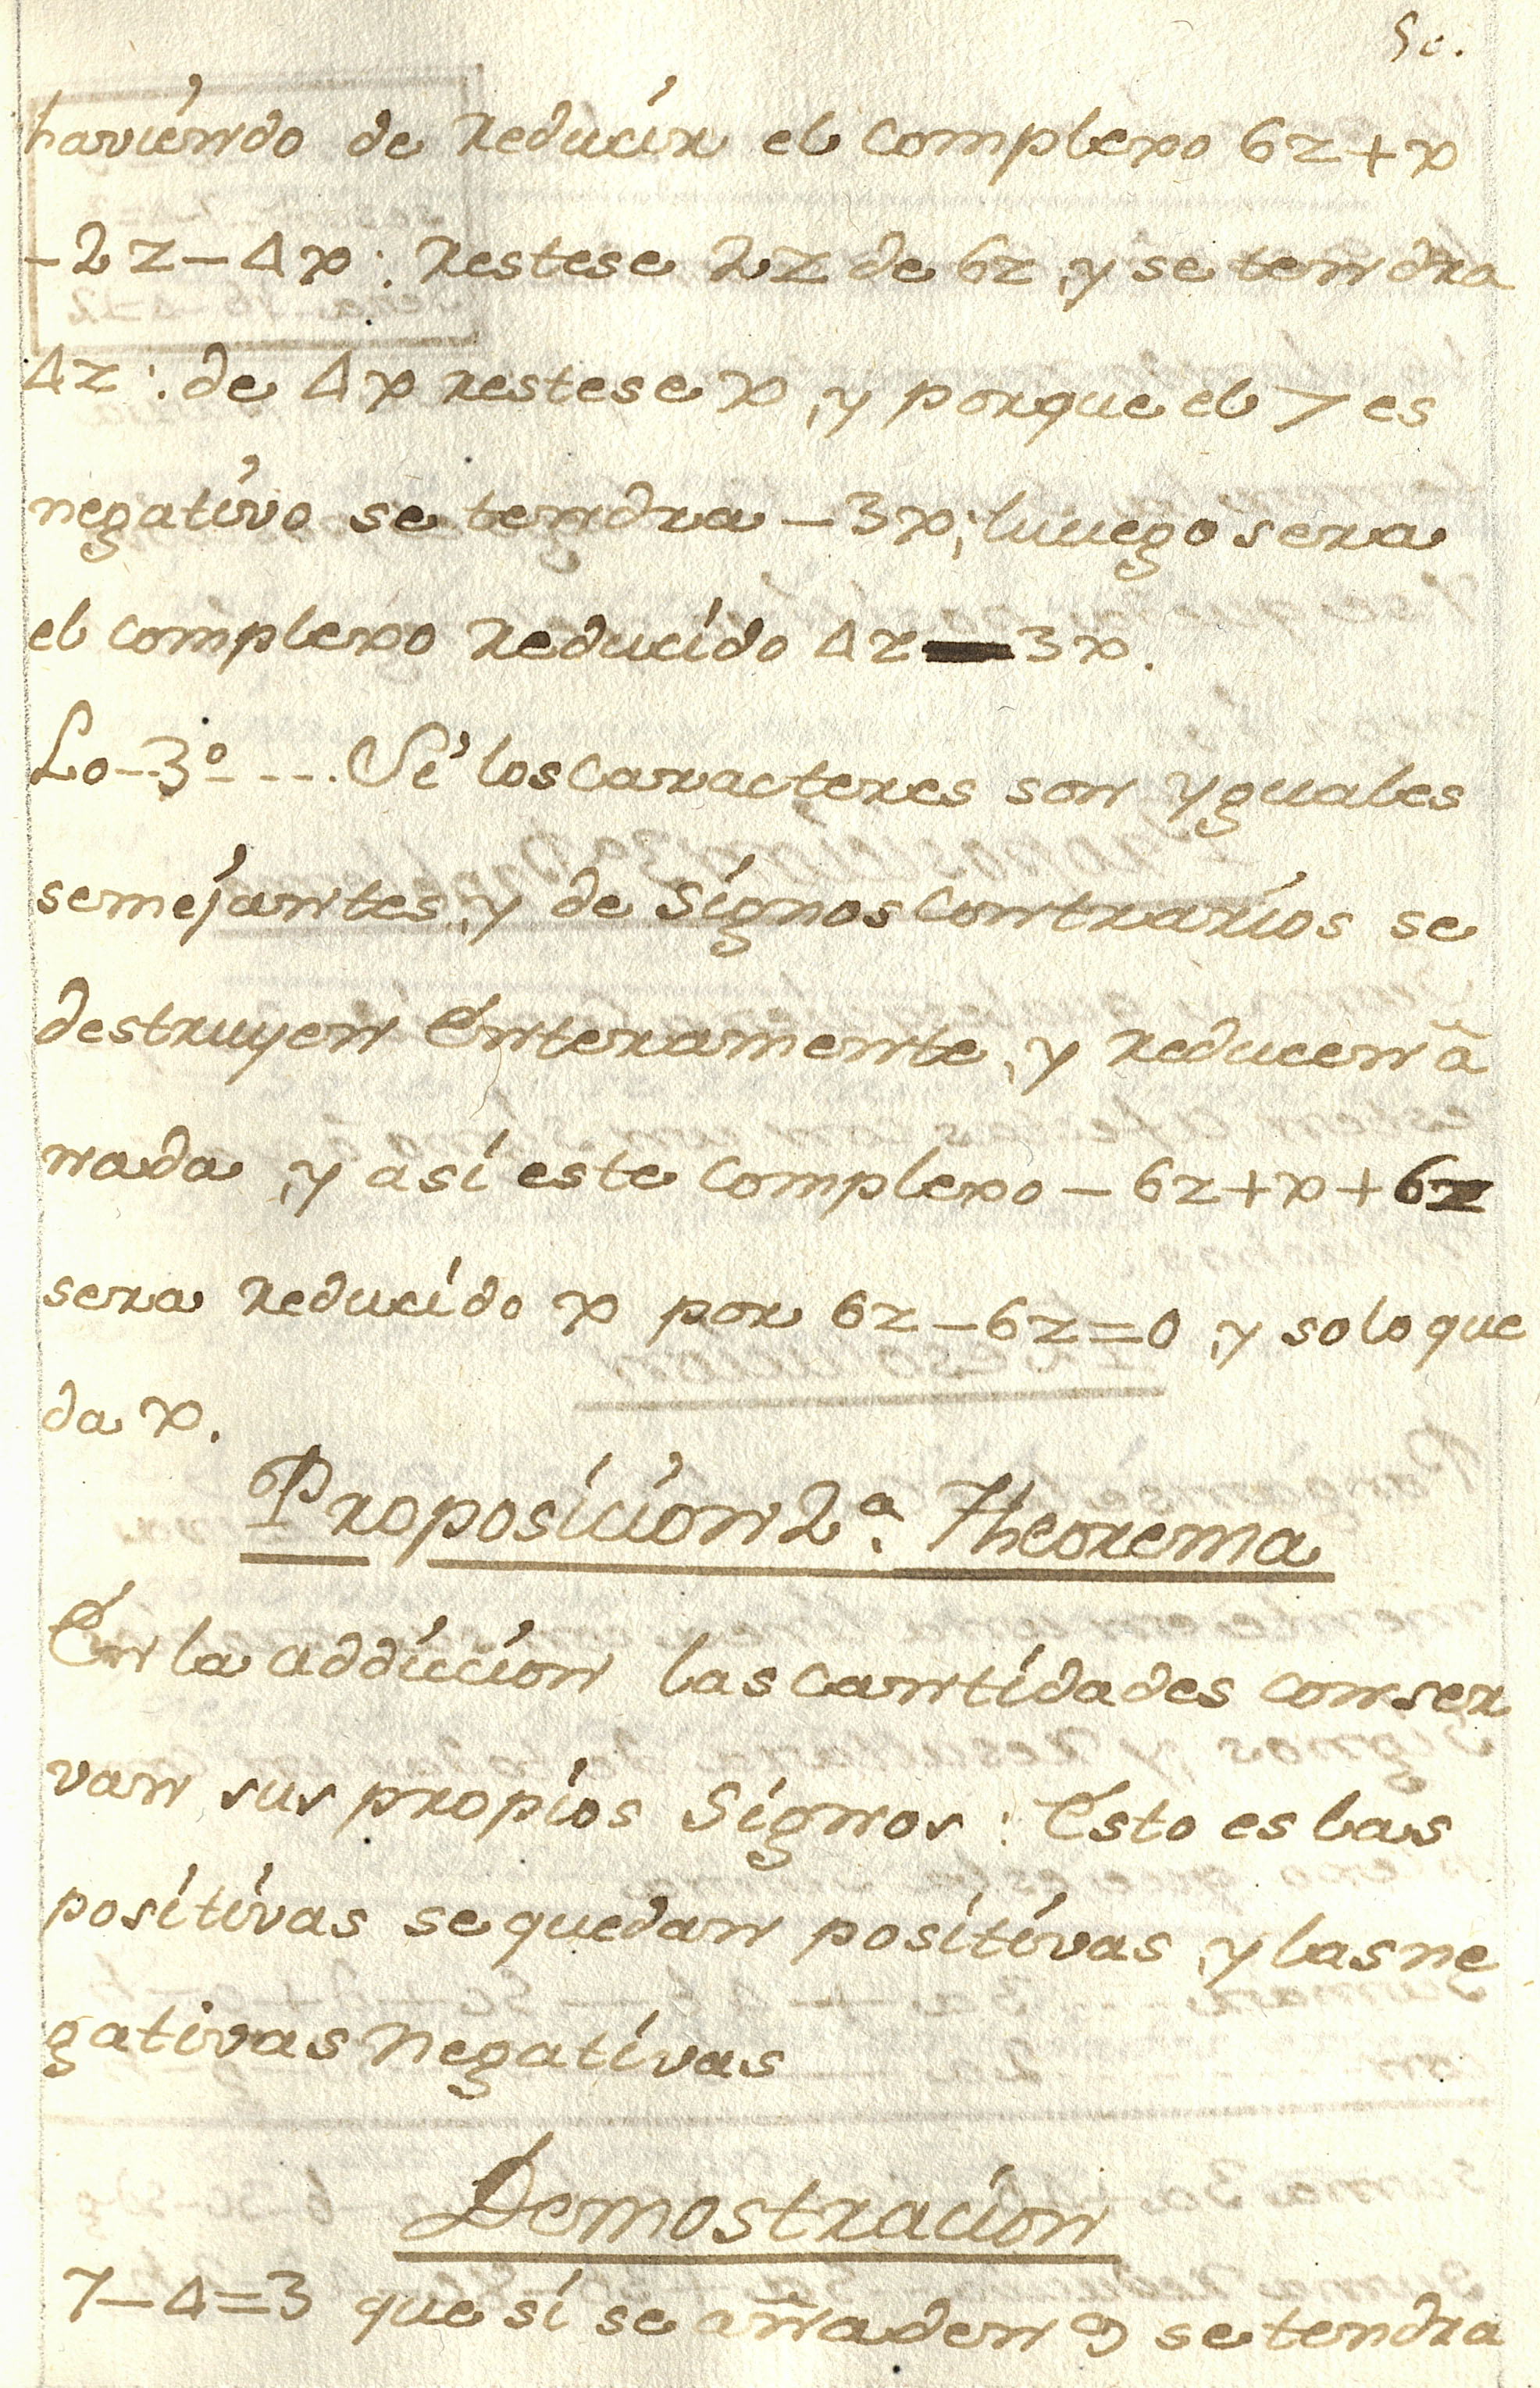 5c.
haviendo de reducir el complexo 6z+x
-2z-4x: restese 2z de 6z, y se tendra
4z: de 4x restese x, y porque el > es
negativo se tendra -3x; luuego sera
el complexo reducido 4z-3x.
Lo--3º---. Si los caracteres son yguales
semejantes, y de signos contrarios se
destruyen Enteramente, y reducen à
nada, y asi este complexo - 6z+x+6z
sera reducido x por 6z-6z=0, y solo que
da x.
Proposicion 2ª. Theorema
En la addicion las cantidades conser
van sus propios signos: Esto es las
positivas se quedan positivas, y las ne
gativas negativas
Demostracion
7-4=3 que si se añaden 9 se tendra